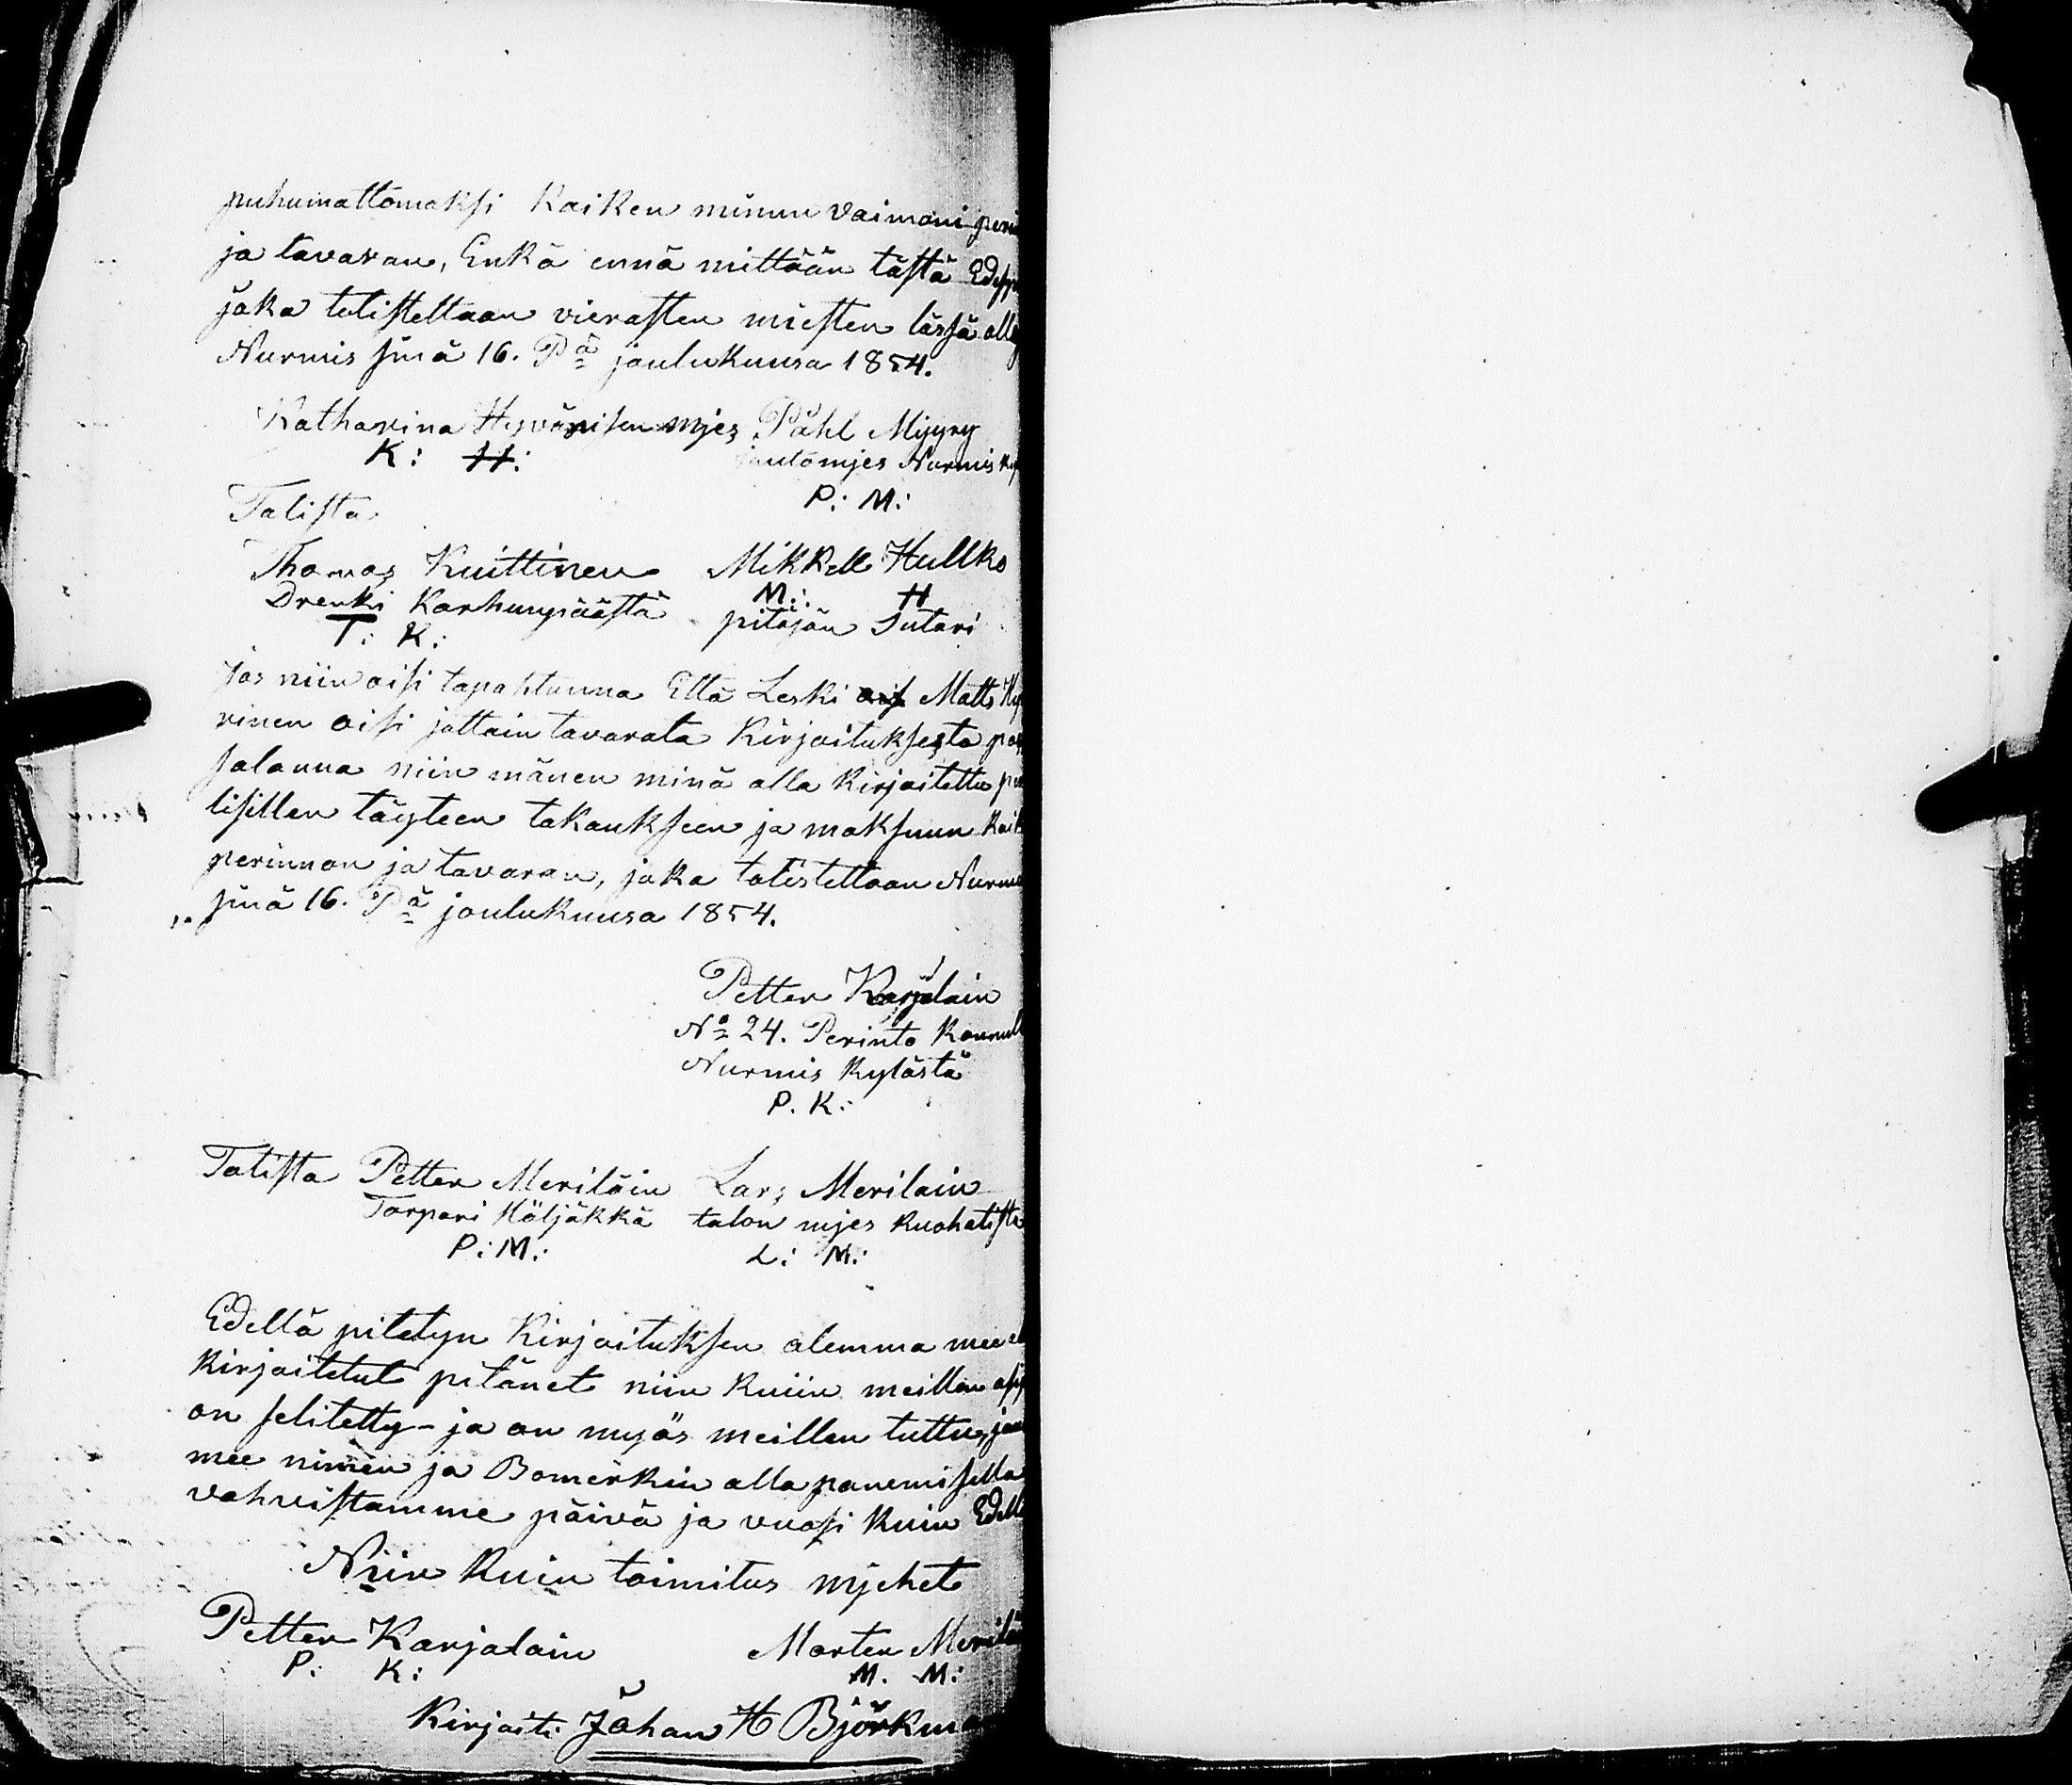 puhumattomaksi Kaiken minun vaimoni peri
ja tavaran, Enkä ennä mittään tästä Edesp
joka totistettaan vierasten miesten lässä all
Nurmis sinä 16. Pä joulukuusa 1854.
Katharina Hyvärisen mjes Påhl Myyry
K: H: mjes Nurmis ky
P: M:
Talista
Thomas Kuittinen Mikkell Hullko
Drenki Karhunpäästä M: H
T: K: pitäjän Sutari
Jos niin oisi tapahtunna Että Leski Matts Hy
rinen oisi jottain tavarata Kirjoituksesta po
salanna niin mänen minä alla Kirjoitettu pe
lisillen täyteen takaukseen ja maksuun Kaik
perinnon ja tavaran, joka totistettaan Nurme
sinä 16. Pä joulukuusa 1854.
Petter Karjalain
No 24. Perinto Konnull
Nurmis Kylästä
P. K:
Totista Petter Meriläin Lars Merilain
Torpari Höljäkkä talon mjes Kuohatista
P: M: L: M:
Edellä pitetyn Kirjoituksen olemma mee al
Kirjoitetut pitänet niin Kuiin meillen asj
on selitetty - ja on myös meillen tuttu, jon
mee nimen ja Bomerkin alla panemisella
vahvistamme päivä ja vuosi Kuin Edell
Niin Kuin toimitus mjehet
Petter Karjalain Morten Merilä
P: K: M. M:
Kirjoiti Johan H Björkma